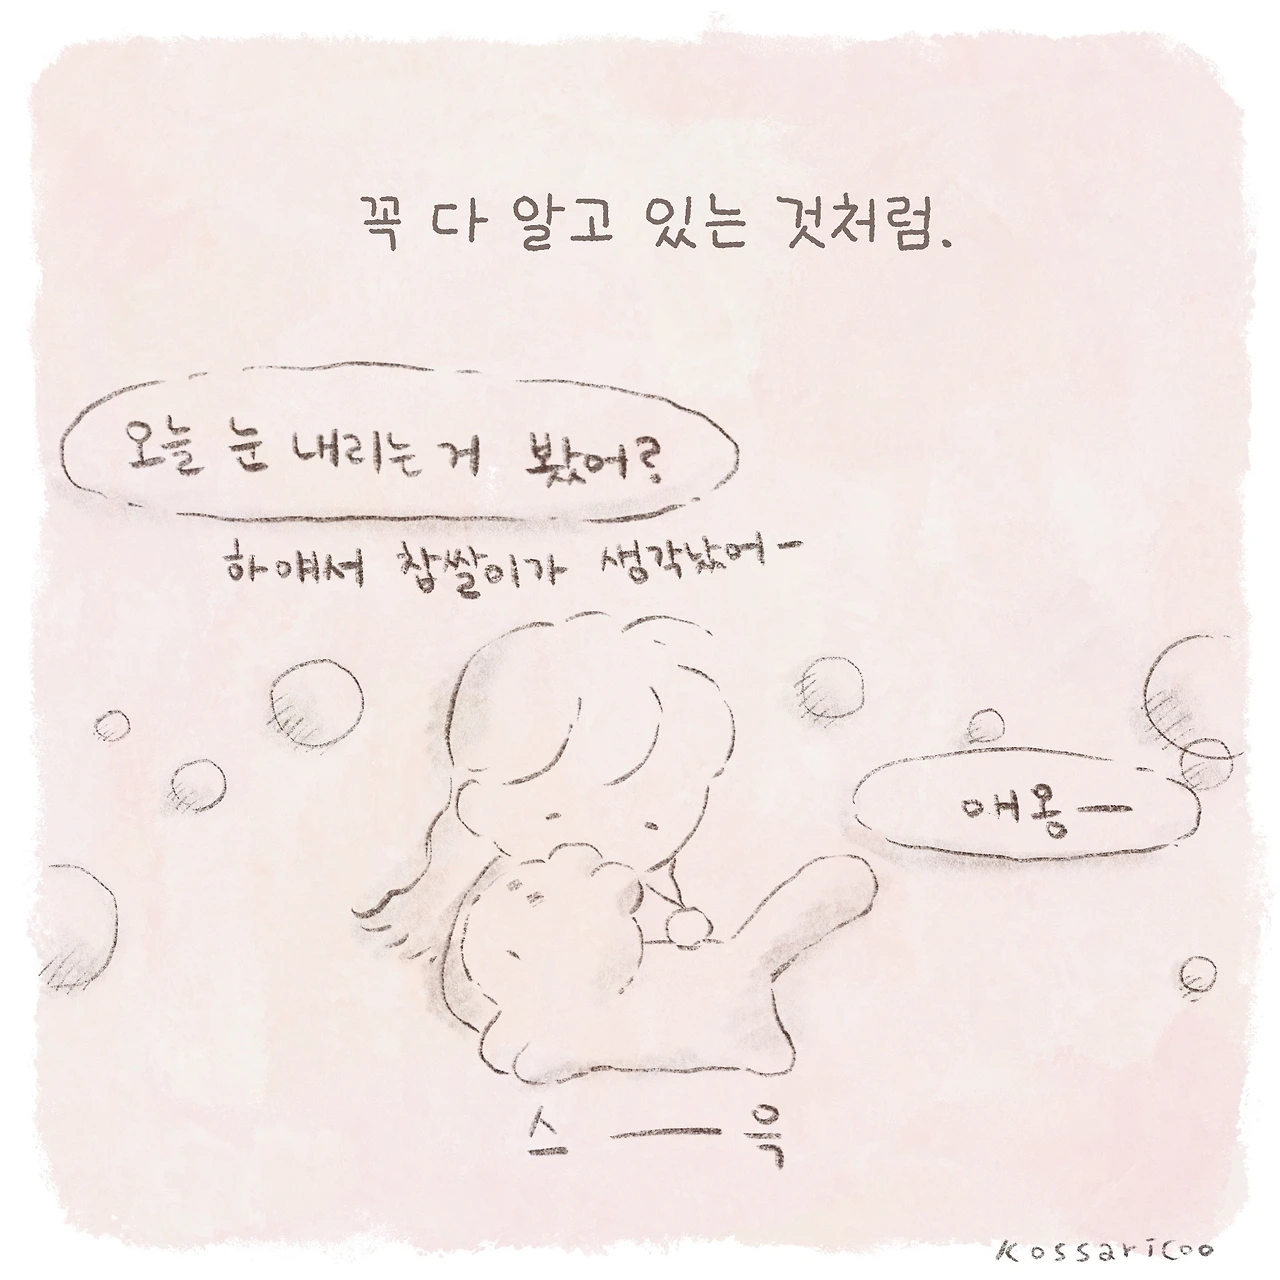 꼭 다 알고 있는 것처럼.
오늘 눈 내리는 거 봤어?
하얘서 찹쌀이가 생각났어-
애옹—
스 — 윽
kossaricoo